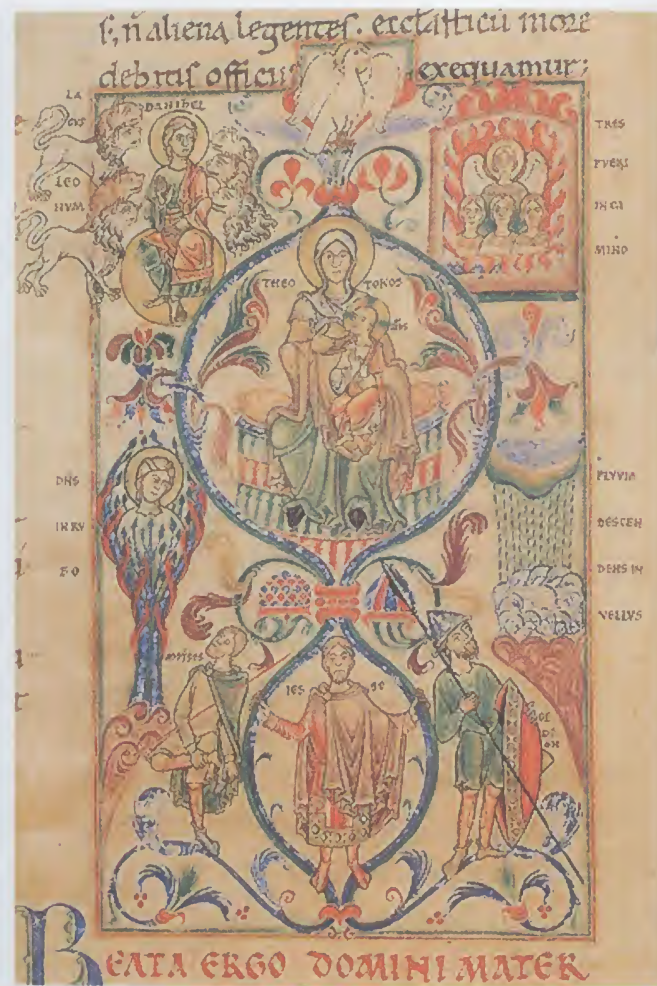 legentes. eccłasticū more
debitis officiis exequamur;
LA
CUS
LEO
NUM
DANIHEL
TRES
PUERI
IN CA
MINO
THEO TOKOS
DNS
IN RU
BO
PLUVIA
DESCEN
DENS IN
VELLUS
MOISES
IES SE
GE
DE
ON
BEATA ERGO DOMINI MATER